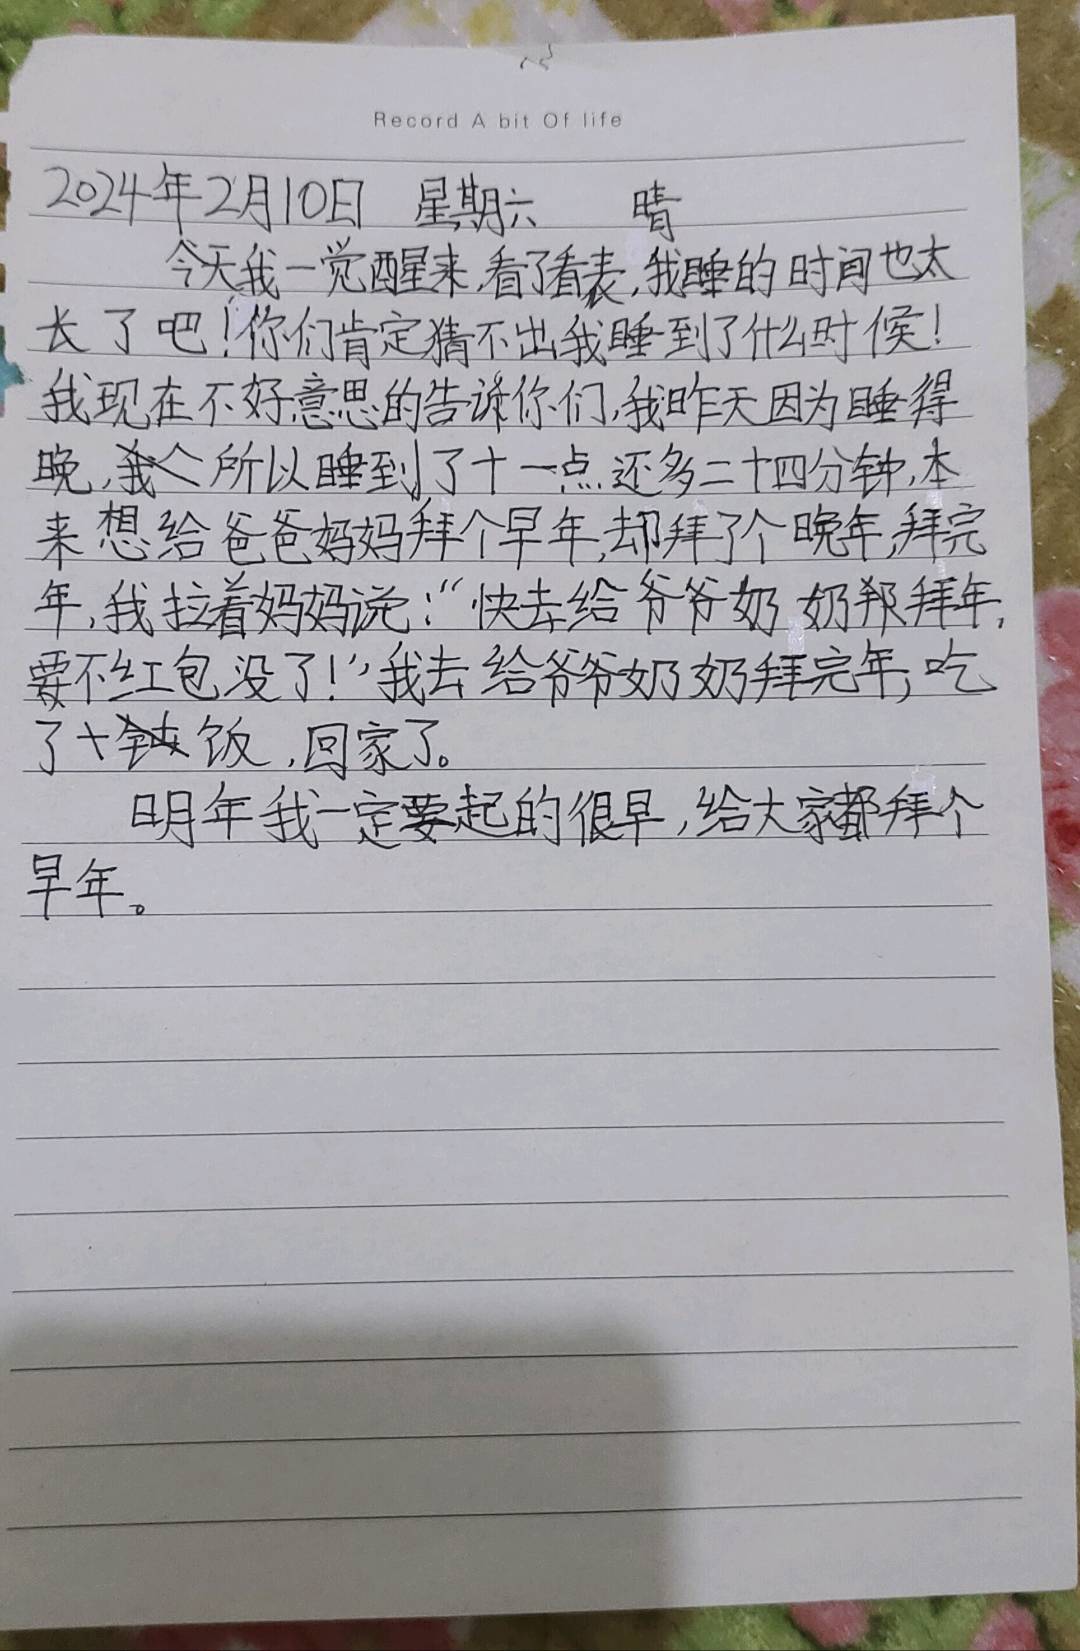 Record A bit Of life
2024年2月10日 星期六 晴
今天我一觉醒来,看了看表,我睡的时间也太
长了吧!你们肯定猜不出我睡到了什么时候!
我现在不好意思的告诉你们,我昨天因为睡得
晚,所以睡到了十一点还多二十四分钟,本
来想给爸爸妈妈拜个早年,却拜了个晚年,拜完
年,我拉着妈妈说:“快去给爷爷奶奶拜年,
要不红包没了!”我去给爷爷奶奶拜完年,吃
了饭,回家了。
明年我一定要起的很早,给大家都拜个
早年。